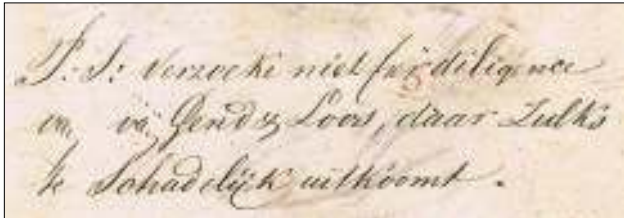 P: S: Verzoeke niet per diligence
va, va, Gend & Loos, daar Zulks
te Schadelijk uitkoomt.